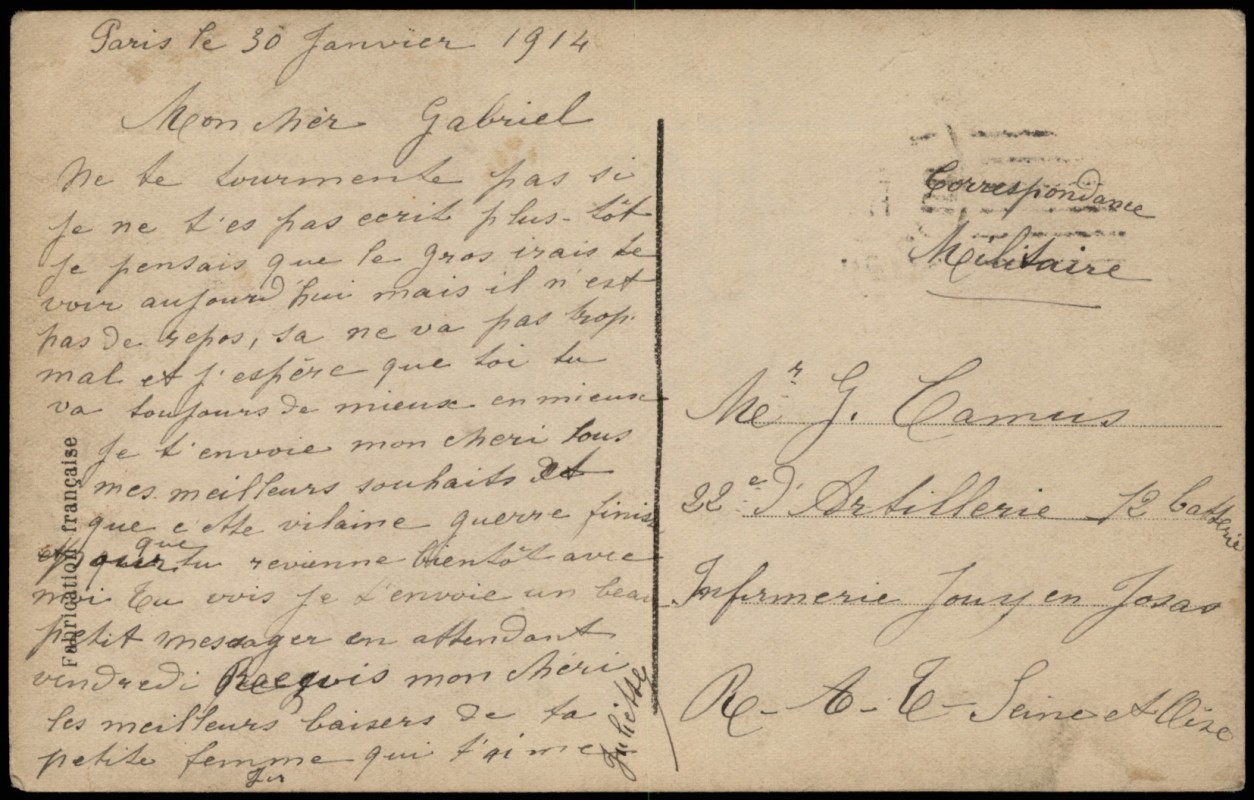 Paris le 30 Janvier 1914
Mon chér Gabriel
Ne te tourmente pas si
je ne t'es pas ecrit plus-tôt
je pensais que le gros irais te
voir aujourd'hui mais il n'est
pas de repos, sa ne va pas trop
mal et j'espère que toi tu
va toujours de mieux en mieux
Je t'envoie mon cheri tous
mes meilleurs souhaits et
que cette vilaine guerre finis
et que tu revienne bientôt avec
moi Tu vois je t'envoie un beau
petit messager en attendant
vendredi Reçois mon chéri
les meilleurs baisers de ta
petite femme qui t'aime
Juliette
Fabrication française
Correspondance
Militaire
Mr G. Camus
22e d'Artillerie 12 batterie
Infirmerie Jouy en Josas
R-A-T- Seine et Oise